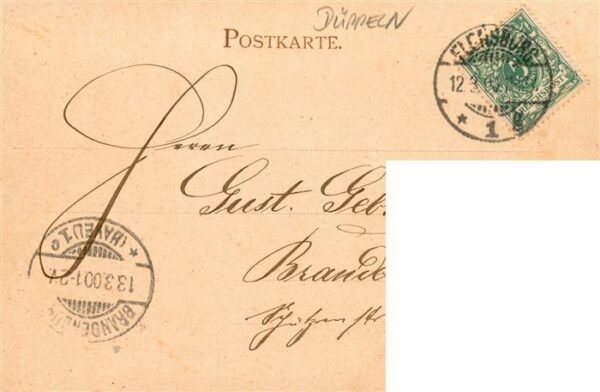 DÜPPELN
POSTKARTE.
FLENSBURG
12.3.
* 1 g
Herrn
Gust. Geb
Brandb
Schützenstr
BRANDENBURG
13.3.00.1-2
* (HAVEL) 1 e